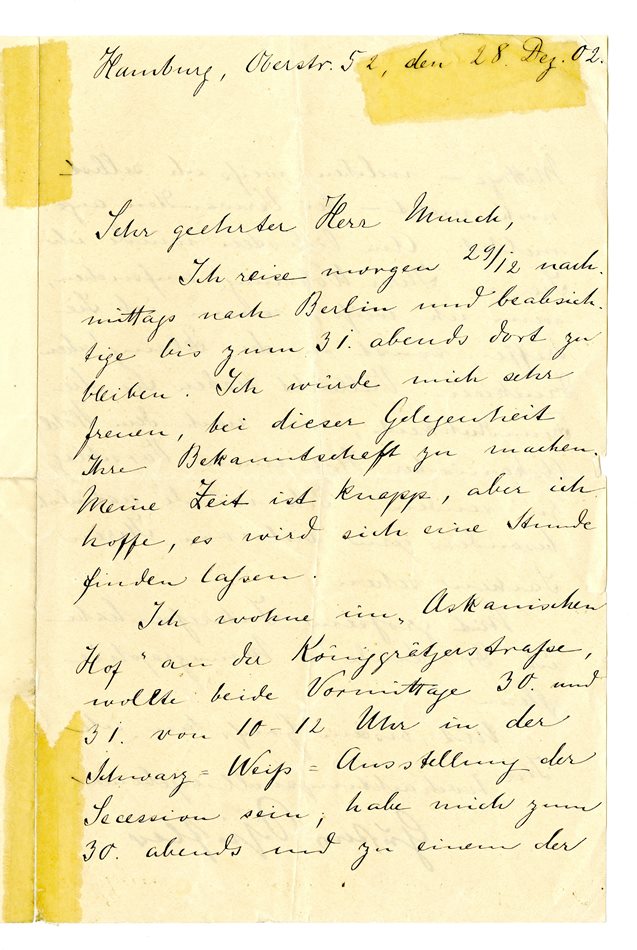 Hamburg, Oberstr. 52, den 28. Dez. 02.
Sehr geehrter Herr Munch,
Ich reise morgen 29/12 nach-
mittags nach Berlin und beabsich-
tige bis zum 31. abends dort zu
bleiben. Ich würde mich sehr
freuen, bei dieser Gelegenheit
Ihre Bekanntschaft zu machen.
Meine Zeit ist knapp, aber ich
hoffe, es wird sich eine Stunde
finden laſsen.
Ich wohne im „Askanischen
Hof" an der Königgrätzerstraſse,
wollte beide Vormittage 30. und
31. von 10-12 Uhr in der
Schwarz=Weiſs=Ausstellung der
Secession sein, habe mich zum
30. abends und zu einem der